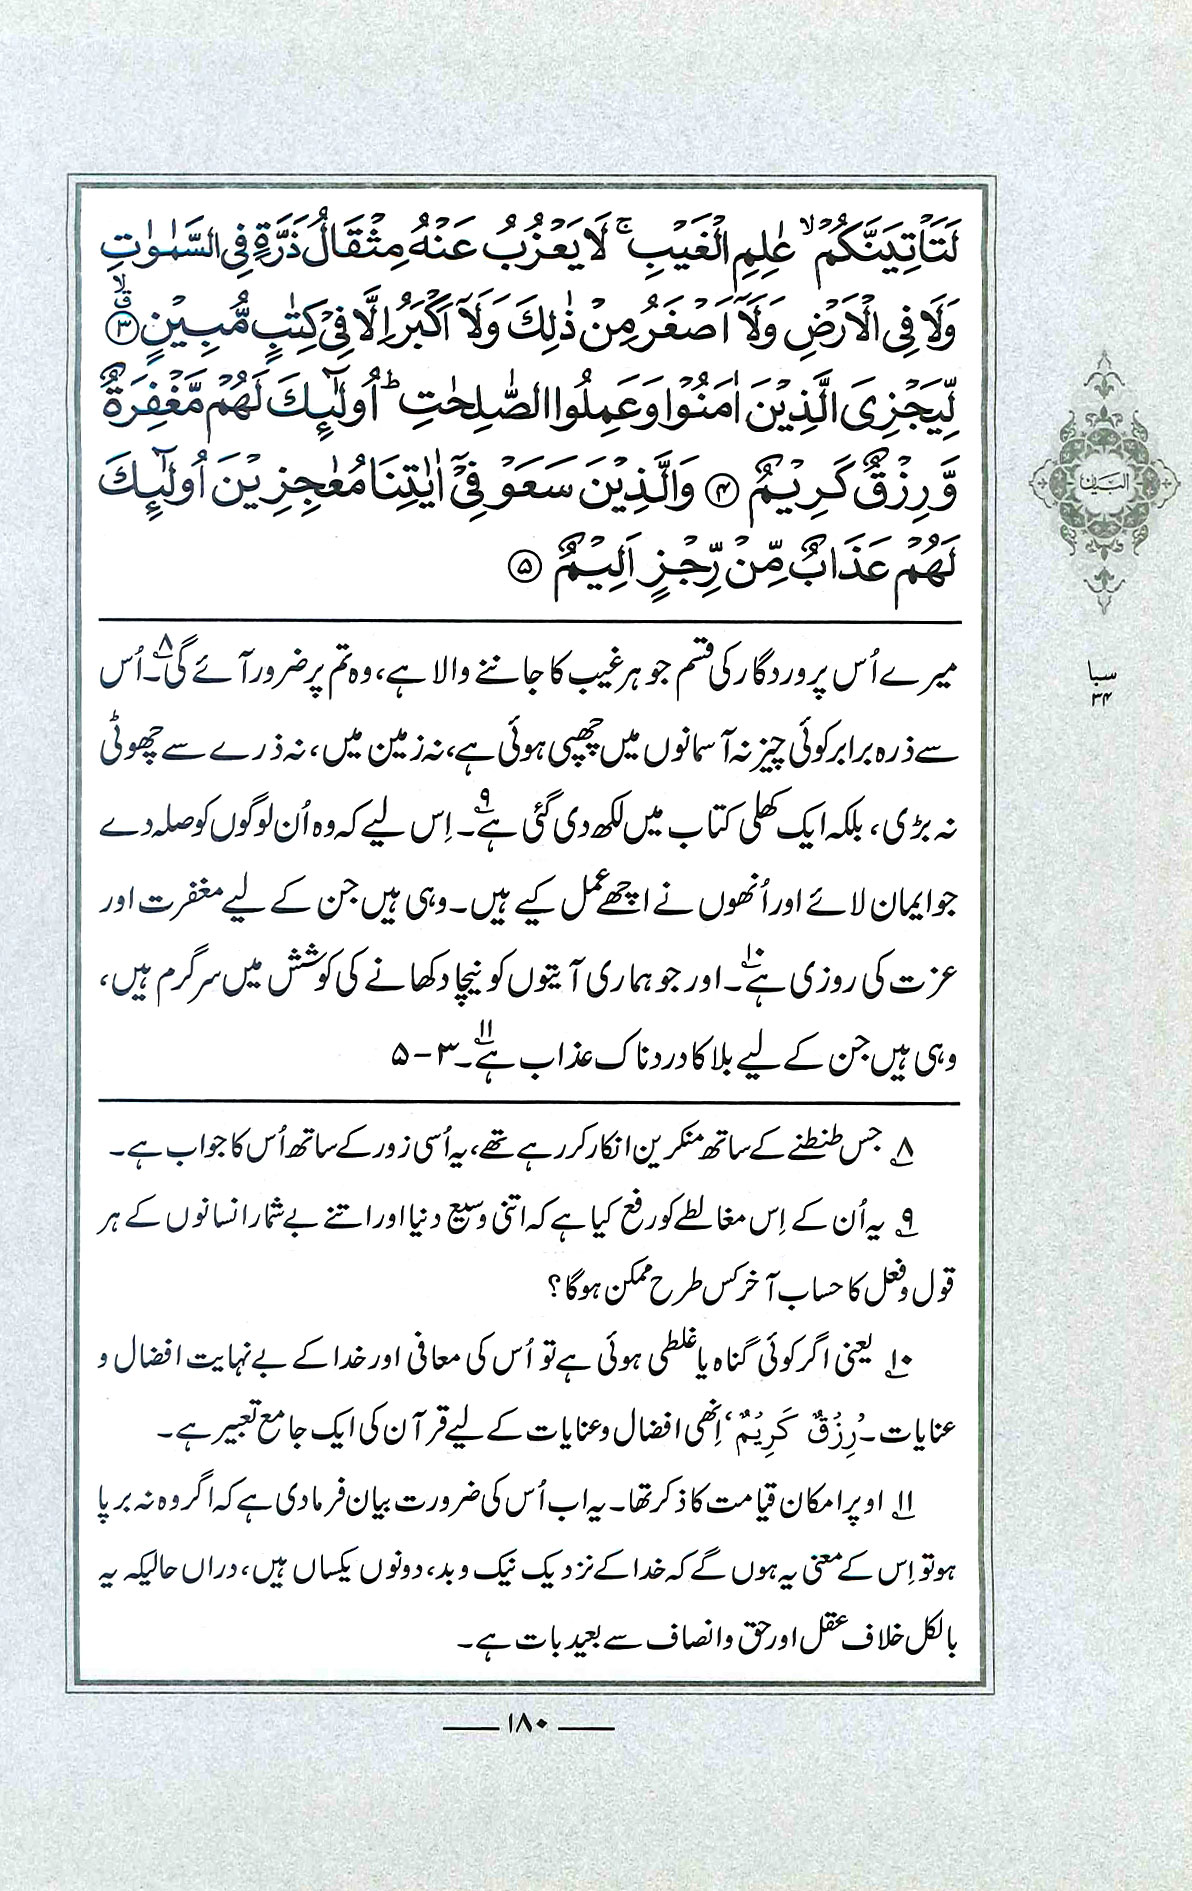 لَتَاْتِيَنَّكُمْ ۙ عٰلِمِ الْغَيْبِ ۚ لَا يَعْزُبُ عَنْهُ مِثْقَالُ ذَرَّةٍ فِي السَّمٰوٰتِ
وَلَا فِي الْاَرْضِ وَلَآ اَصْغَرُ مِنْ ذٰلِكَ وَلَآ اَكْبَرُ اِلَّا فِيْ كِتٰبٍ مُّبِيْنٍ ﴿۳﴾ ۙق
لِّيَجْزِيَ الَّذِيْنَ اٰمَنُوْا وَعَمِلُوا الصّٰلِحٰتِ ؕ اُولٰٓئِكَ لَهُمْ مَّغْفِرَةٌ
وَّرِزْقٌ كَرِيْمٌ ﴿۴﴾ وَالَّذِيْنَ سَعَوْ فِيْٓ اٰيٰتِنَا مُعٰجِزِيْنَ اُولٰٓئِكَ
لَهُمْ عَذَابٌ مِّنْ رِّجْزٍ اَلِيْمٌ ﴿۵﴾
میرے اُس پروردگار کی قسم جو ہر غیب کا جاننے والا ہے، وہ تم پر ضرور آئے گی۸۔ اُس
سے ذرہ برابر کوئی چیز نہ آسمانوں میں چھپی ہوئی ہے، نہ زمین میں، نہ ذرے سے چھوٹی
نہ بڑی، بلکہ ایک کھلی کتاب میں لکھ دی گئی ہے۹۔ اِس لیے کہ وہ اُن لوگوں کو صلہ دے
جو ایمان لائے اور اُنھوں نے اچھے عمل کیے ہیں۔ وہی ہیں جن کے لیے مغفرت اور
عزت کی روزی ہے۱۰۔ اور جو ہماری آیتوں کو نیچا دکھانے کی کوشش میں سرگرم ہیں،
وہی ہیں جن کے لیے بلا کا دردناک عذاب ہے۱۱۔ ۳-۵
۸ جس طنطنے کے ساتھ منکرین انکار کر رہے تھے، یہ اُسی زور کے ساتھ اُس کا جواب ہے۔
۹ یہ اُن کے اِس مغالطے کو رفع کیا ہے کہ اتنی وسیع دنیا اور اتنے بے شمار انسانوں کے ہر
قول و فعل کا حساب آخر کس طرح ممکن ہوگا؟
۱۰ یعنی اگر کوئی گناہ یا غلطی ہوئی ہے تو اُس کی معافی اور خدا کے بے نہایت افضال و
عنایات۔ ’رِزْقٌ كَرِيْمٌ‘ اِنھی افضال و عنایات کے لیے قرآن کی ایک جامع تعبیر ہے۔
۱۱ اوپر امکان قیامت کا ذکر تھا۔ یہ اب اُس کی ضرورت بیان فرما دی ہے کہ اگر وہ نہ برپا
ہو تو اِس کے معنی یہ ہوں گے کہ خدا کے نزدیک نیک و بد، دونوں یکساں ہیں، دراں حالیکہ یہ
بالکل خلاف عقل اور حق و انصاف سے بعید بات ہے۔
البیان
سبا
۳۴
۱۸۰